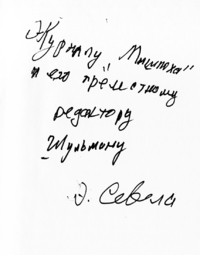 Журналу "Мишпоха"
и его прелестному
редактору
Шульману
Э. Севела